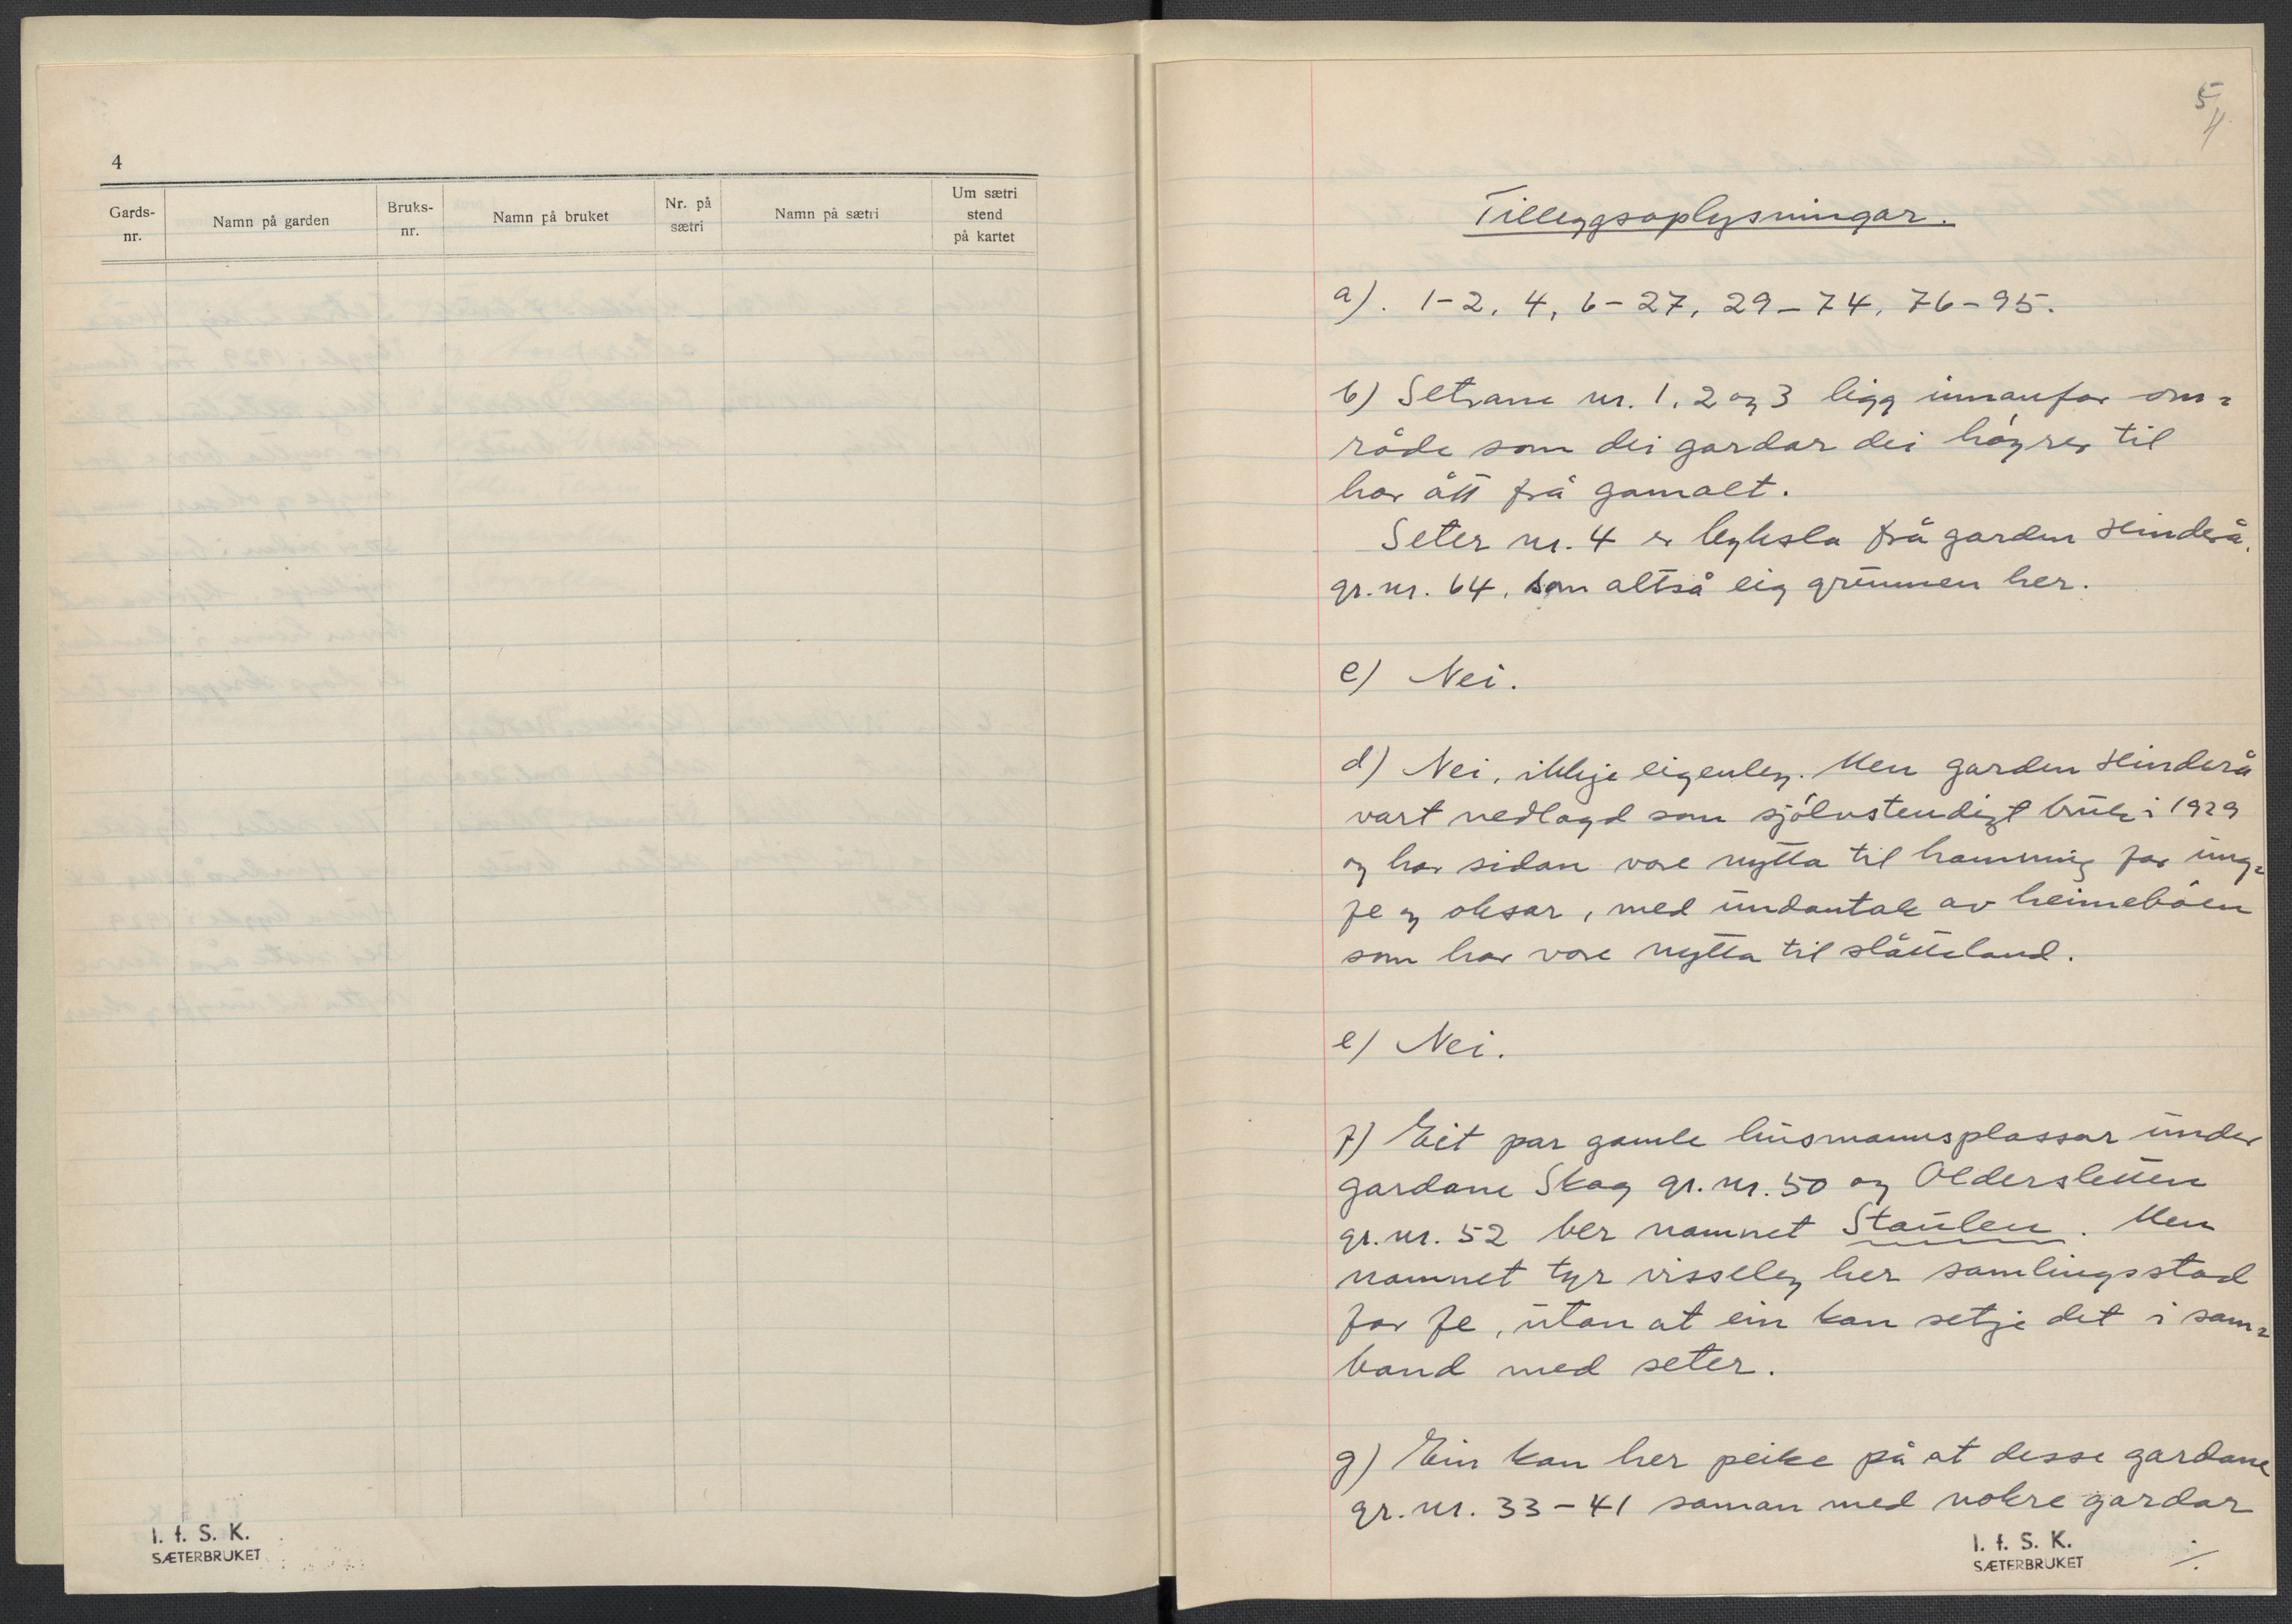 4
Gards-
nr.
Namn på garden
Bruks-
nr.
Namn på bruket
Nr. på
sætri
Namn på sætri
Um sætri
stend
på kartet
I. f. S. K.
SÆTERBRUKET
5/4
Tilleggsoplysningar.
a). 1-2, 4, 6-27, 29-74, 76-95.
b) Setrane nr. 1, 2 og 3 ligg innanfor om=
råde som dei gardar dei høyrer til
har ått frå gamalt.
Seter nr. 4 er bygsla frå garden Hinderå,
gr. nr. 64, som altså eig grunnen her.
c) Nei.
d) Nei, ikkje eigenleg. Men garden Hinderå
vart nedlagd som sjølvstendigt bruk i 1929
og har sidan vore nytta til hamning for ung=
fe og oksar, med undantak av heimebøen
som har vore nytta til slåtteland.
e) Nei.
f) Eit par gamle husmannsplassar under
gardane Skog gr. nr. 50 og Oldersletten
gr. nr. 52 ber namnet Staulen. Men
namnet tyr visseleg her samlingsstad
for fe, utan at ein kan setje det i sam=
band med seter.
g) Ein kan her peike på at desse gardane
gr. nr. 33-41 saman med nokre gardar
I. f. S. K.
SÆTERBRUKET
./.